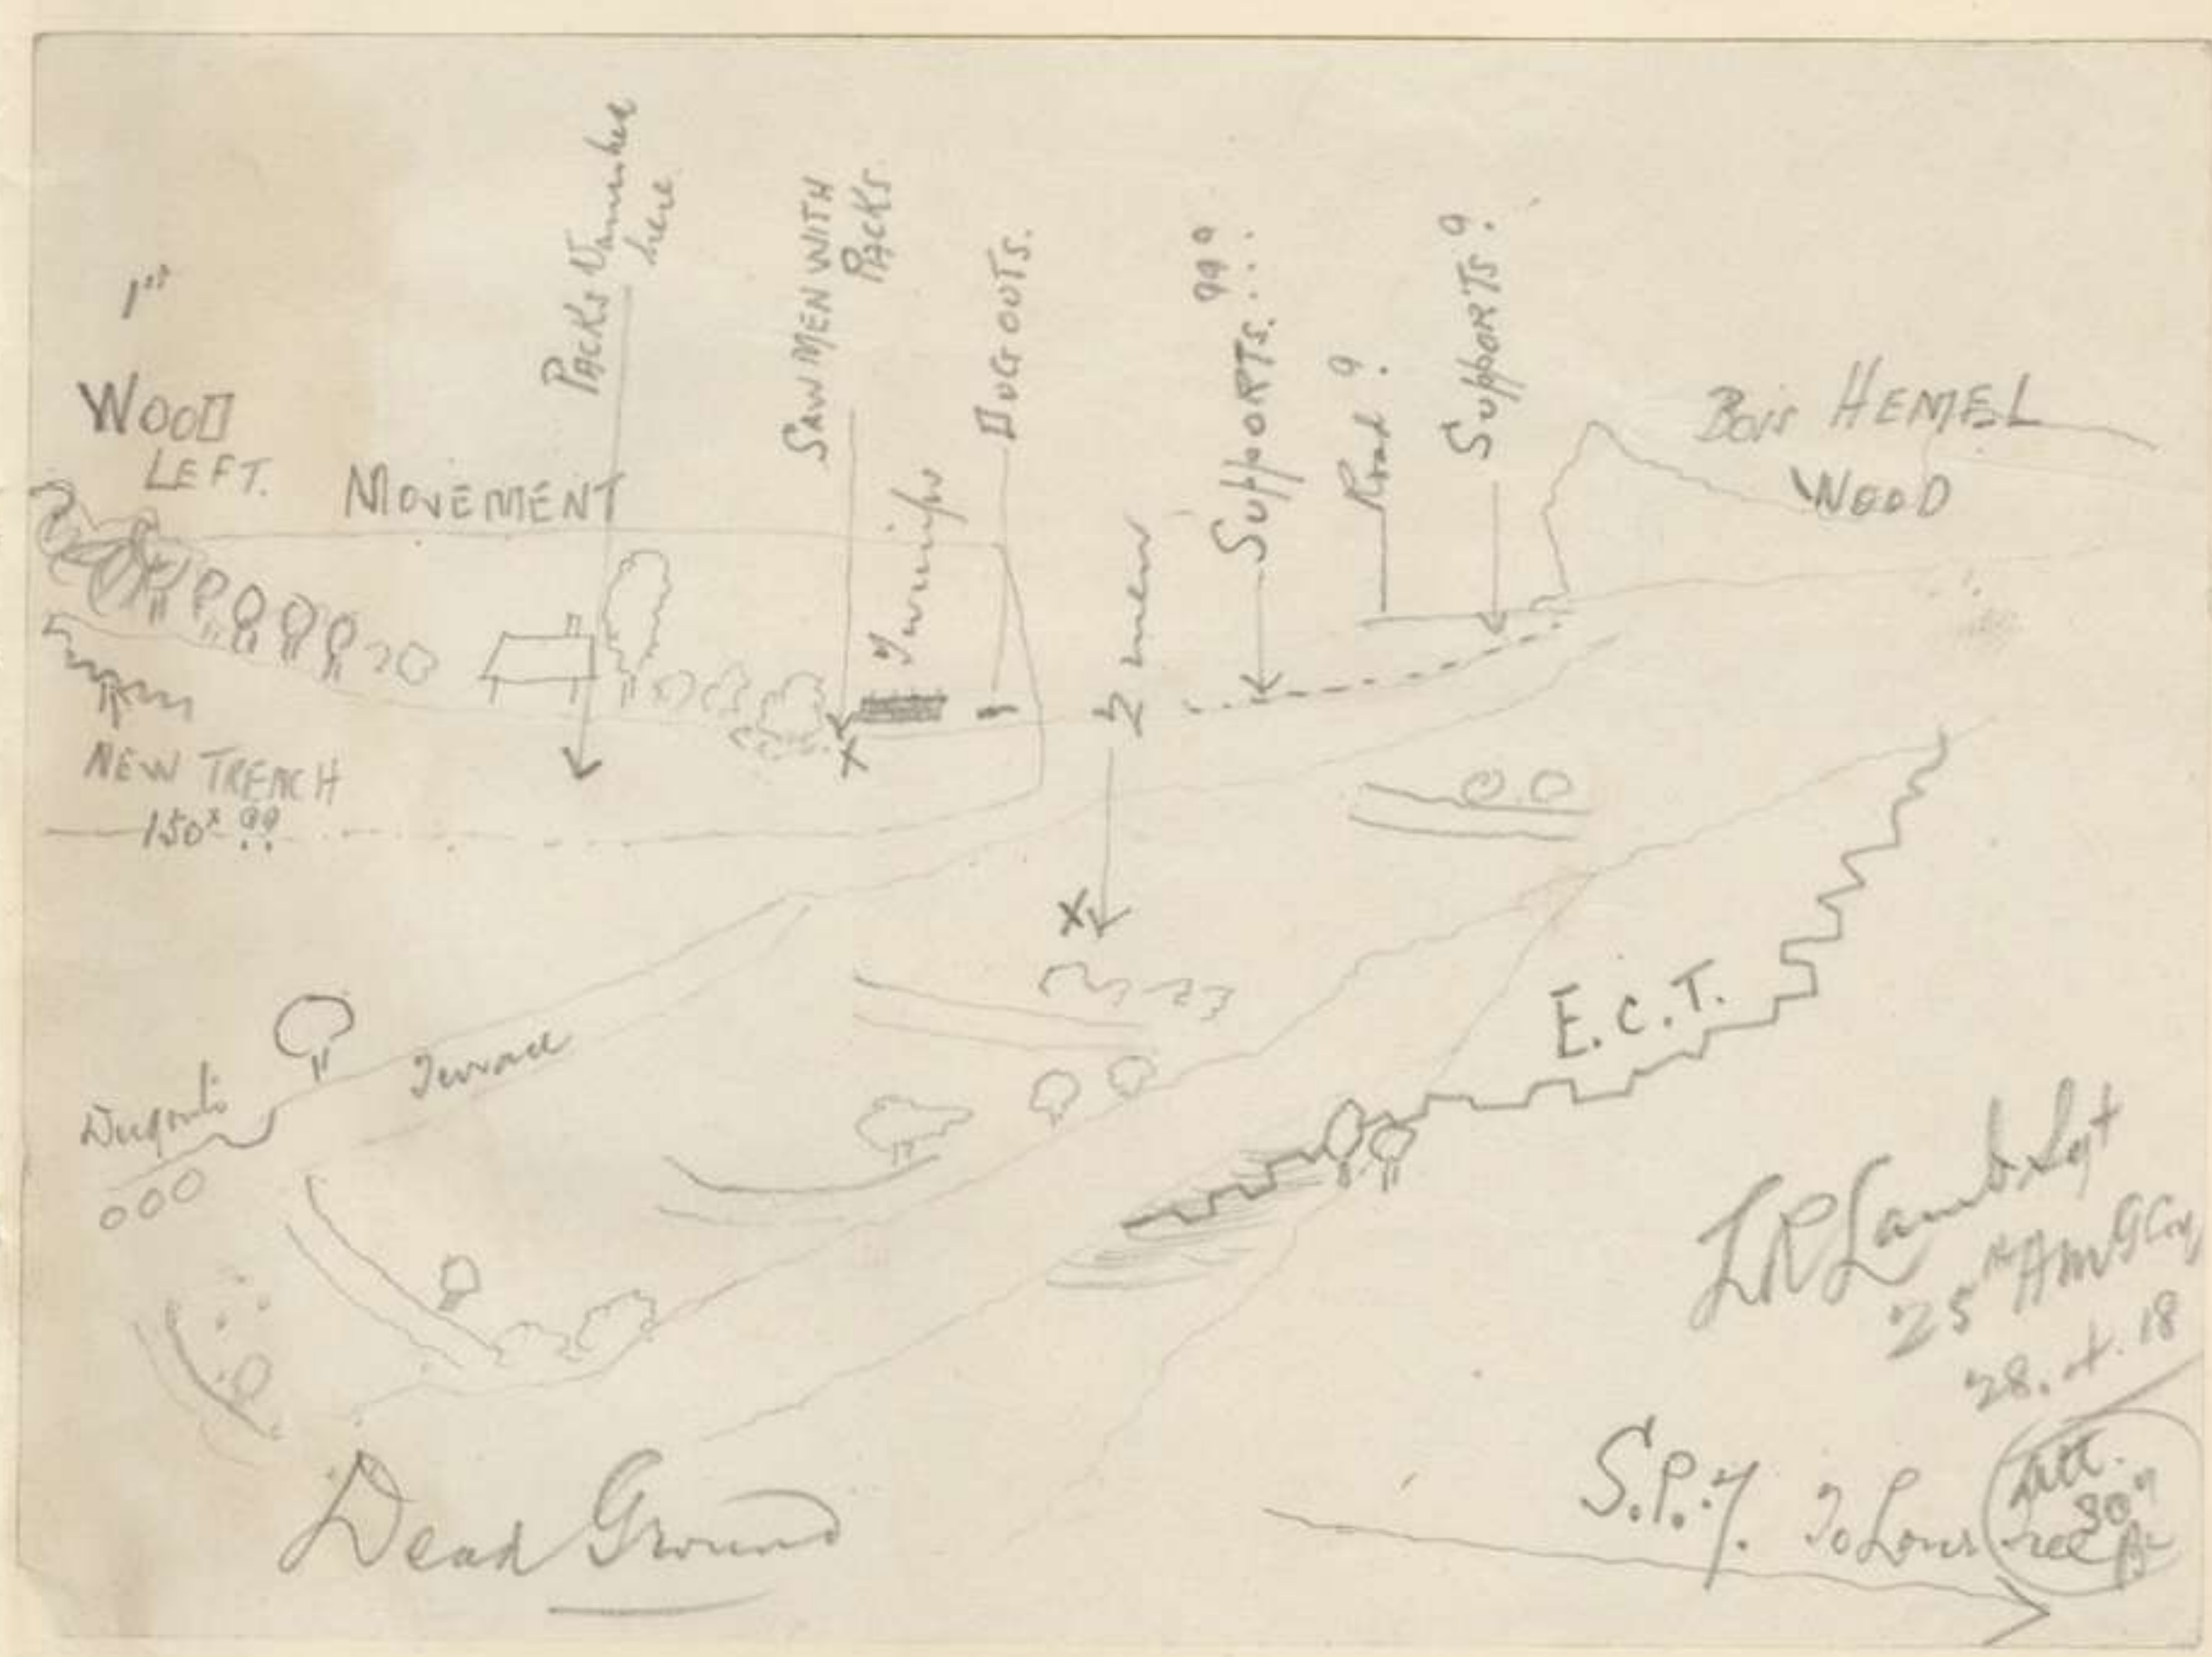 1"
WOOD
LEFT.
MOVEMENT
PACKS Vanished
here
SAW MEN WITH
PACKS
DUGOUTS.
Turnips
2 men
SuppoRTs. ???
Road ?
SuppoRTs ?
Bois HEMEL
WOOD
NEW TRENCH
150x ??
Dugouts
Terrace
E.C.T.
LR Lamb Sgt
25th AMG Coy
28. 18
Dead Ground
S.P.7. To Lone
tree